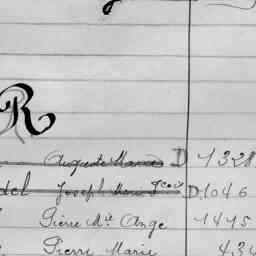 R
Auguste Marie D 1328
del Joseph Marie D. 1046
Pierre Mie Ange 1415
Pierre Marie 434